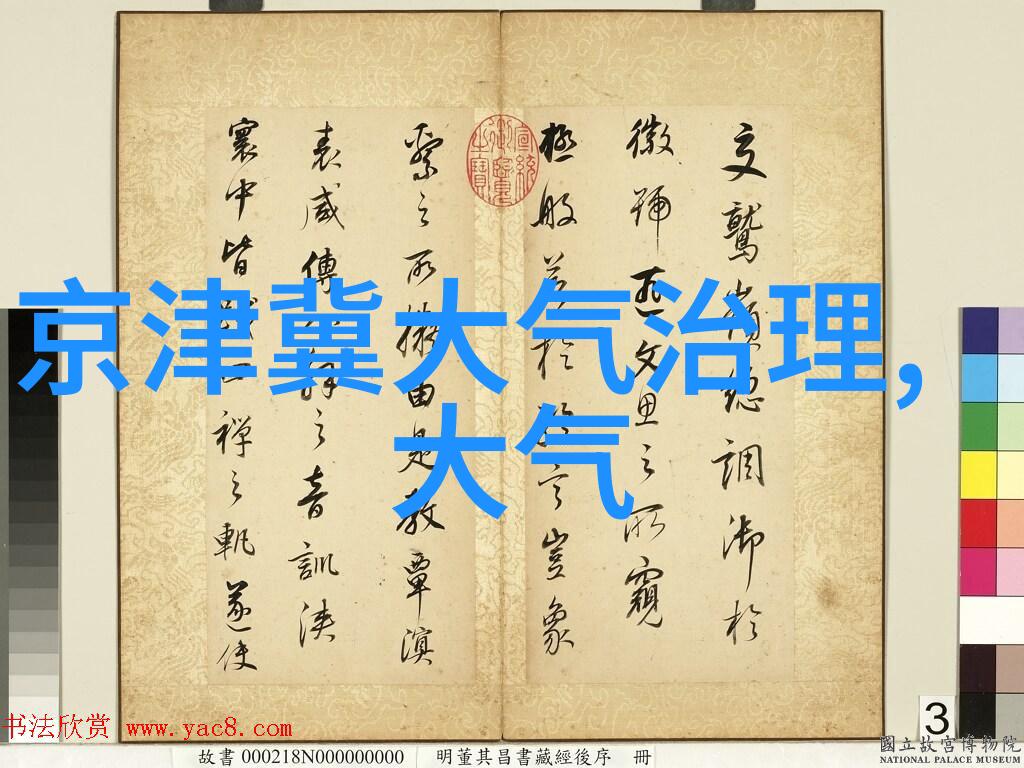 京津冀大气治理,
大气
文鷲嶺總調御於
徽號匪文思之所窺
極般若於言豈象
繫之所擬由是教覃溟
表咸傳之音訓浹
寰中皆四禪之軌遂使
书法欣赏 www.yac8.com
故書 000218N000000000
明董其昌書藏經後序 冊
3
國立故宮博物院
NATIONAL PALACE MUSEUM